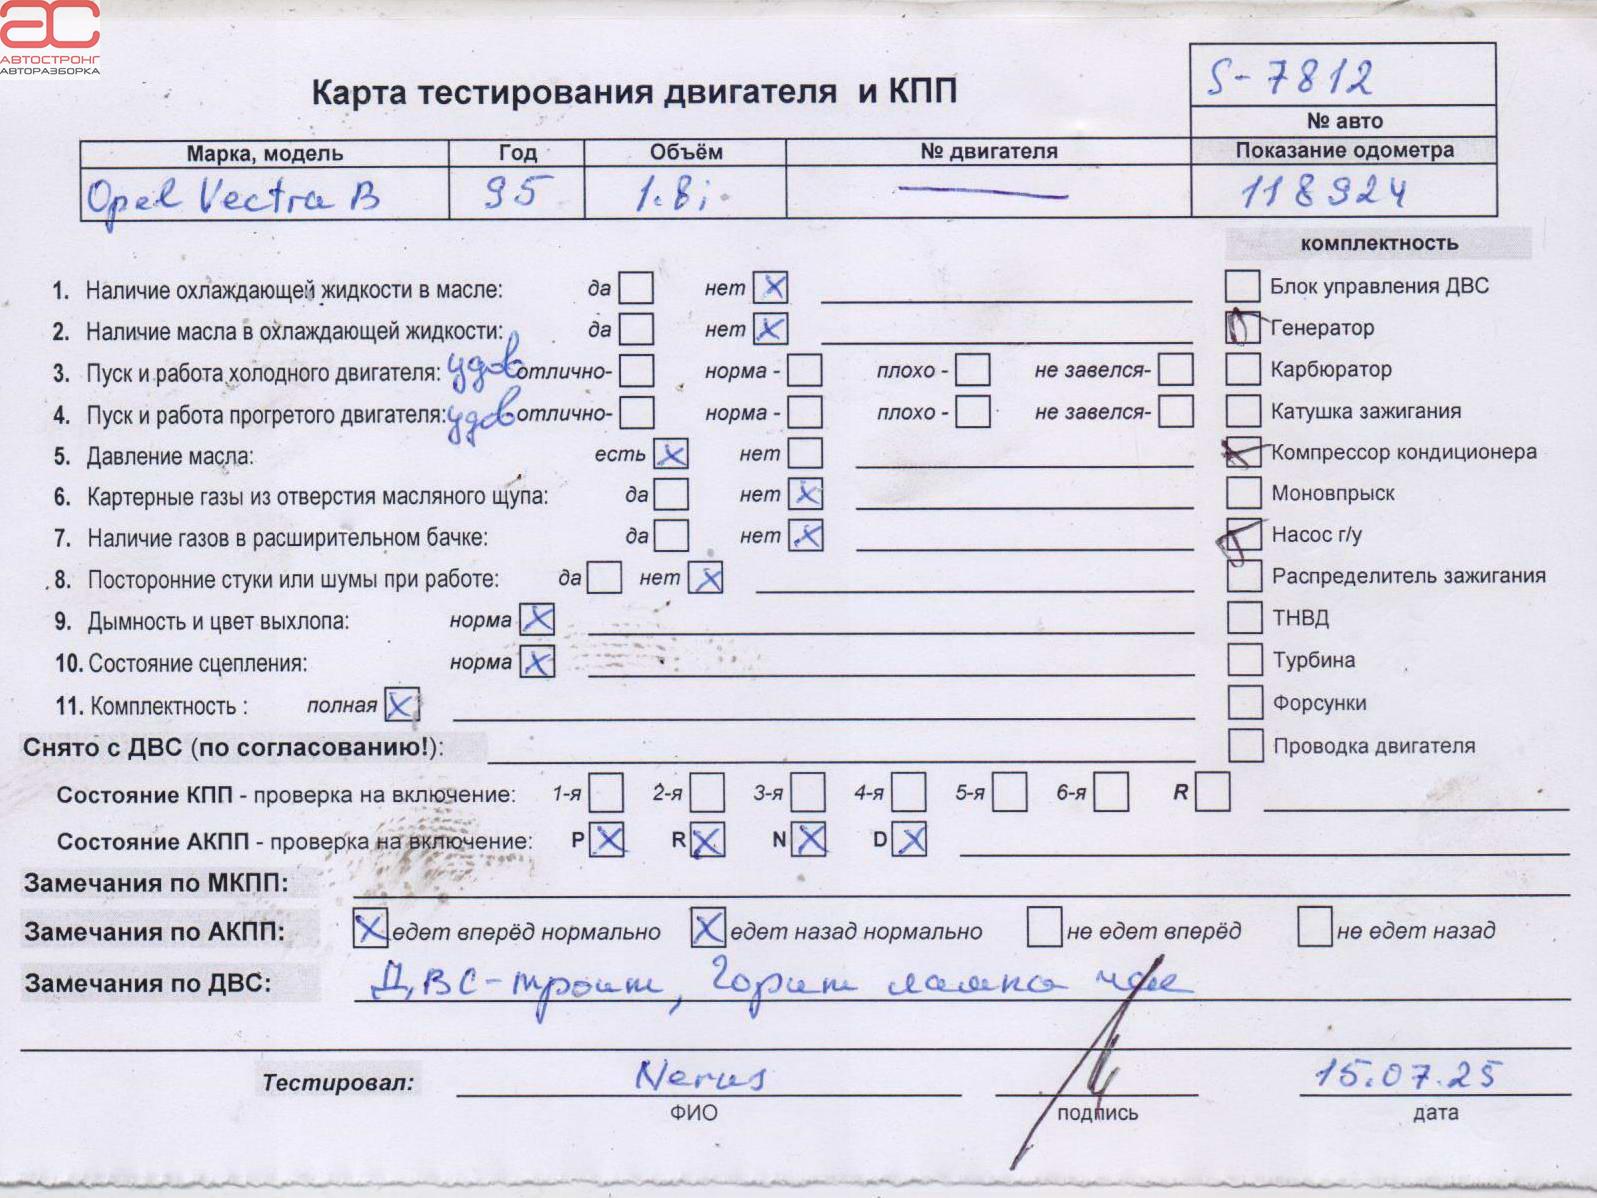 АВТОСТРОНГ
АВТОРАЗБОРКА
S-7812
Карта тестирования двигателя и КПП
№ авто
Марка, модель Год Объём № двигателя Показание одометра
Opel Vectra B 95 1.8i — 118924
комплектность
1. Наличие охлаждающей жидкости в масле: да нет X Блок управления ДВС
2. Наличие масла в охлаждающей жидкости: да нет X Генератор
3. Пуск и работа холодного двигателя: удов отлично- норма - плохо - не завелся- Карбюратор
4. Пуск и работа прогретого двигателя: удов отлично- норма - плохо - не завелся- Катушка зажигания
5. Давление масла: есть X нет Компрессор кондиционера
6. Картерные газы из отверстия масляного щупа: да нет X Моновпрыск
7. Наличие газов в расширительном бачке: да нет X Насос г/у
8. Посторонние стуки или шумы при работе: да нет X Распределитель зажигания
9. Дымность и цвет выхлопа: норма X ТНВД
10. Состояние сцепления: норма X Турбина
11. Комплектность : полная X Форсунки
Снято с ДВС (по согласованию!): Проводка двигателя
Состояние КПП - проверка на включение: 1-я 2-я 3-я 4-я 5-я 6-я R
Состояние АКПП - проверка на включение: P X R X N X D X
Замечания по МКПП:
Замечания по АКПП: X едет вперёд нормально X едет назад нормально не едет вперёд не едет назад
Замечания по ДВС: ДВС-троит, Горит лампа чек
Тестировал: 15.07.25
ФИО подпись дата